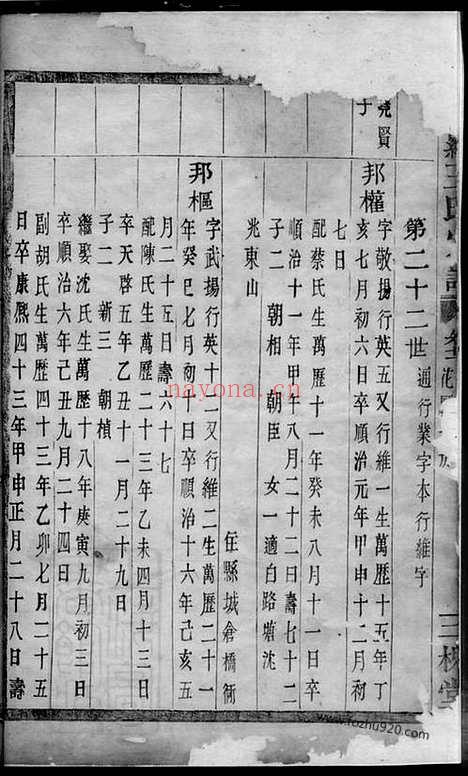 氏
三槐堂
第二十二世 通行業字本行維字
堯賢子
邦權 字敬揚行英五又行維一生萬歷十五年丁
亥七月初六日卒順治元年甲申十二月初
七日
配蔡氏生萬歷十一年癸未八月十一日卒
順治十一年甲午八月二十二日壽七十二
子二 朝相 朝臣 女一適白路塘沈
兆東山
住縣城倉橋街
邦樞 字武揚行英十二又行維二生萬歷二十一
年癸巳七月初十日卒順治十六年己亥五
月二十五日壽六十七
配陳氏生萬歷二十三年乙未四月十三日
卒天啓五年乙丑十一月二十九日
子二 新三 朝楨
繼娶沈氏生萬歷十八年庚寅九月初三日
卒順治六年己丑九月二十四日
副胡氏生萬歷四十三年乙卯七月二十五
日卒康熙四十三年甲申正月二十八日壽
nayona.cn
www.fozhu920.com